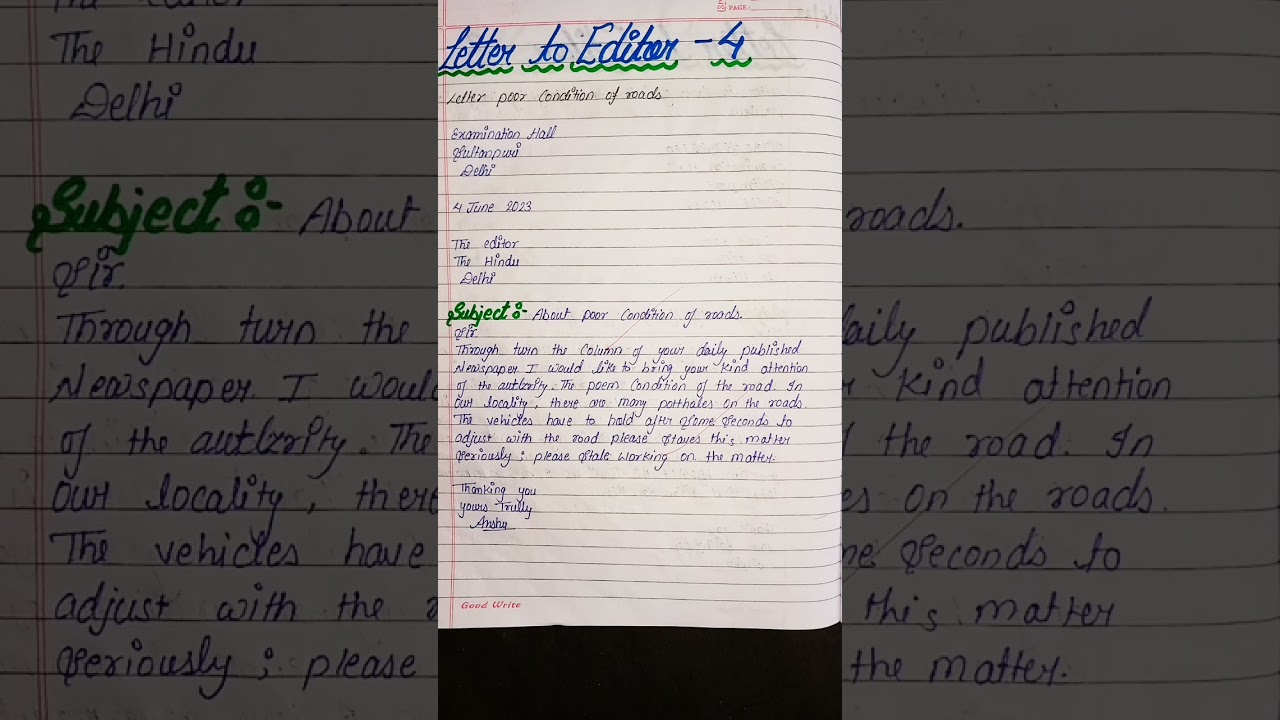 PAGE:
Letter to Editor - 4
Letter poor Condition of roads
Examination Hall
Sultanpuri
Delhi
4 June 2023
The editor
The Hindu
Delhi
Subject :- About poor Condition of roads.
Sir.
Through turn the Column of your daily published
Newspaper I would like to bring your kind attention
of the autherity. The poem Condition of the road. In
our locality, there are many potthales on the roads.
The vehicles have to hald after some seconds to
adjust with the road please staues this matter
seriously ; please state working on the matter.
Thanking you
yours Trully
Anshu
Good Write
The Hindu
Delhi
Subject :- About
roads.
Sir.
Through turn the
daily published
Newspaper I would
kind attention
of the autherity. The
the road. In
our locality, there
on the roads.
The vehicles have
seconds to
adjust with the
this matter
seriously ; please
the matter.